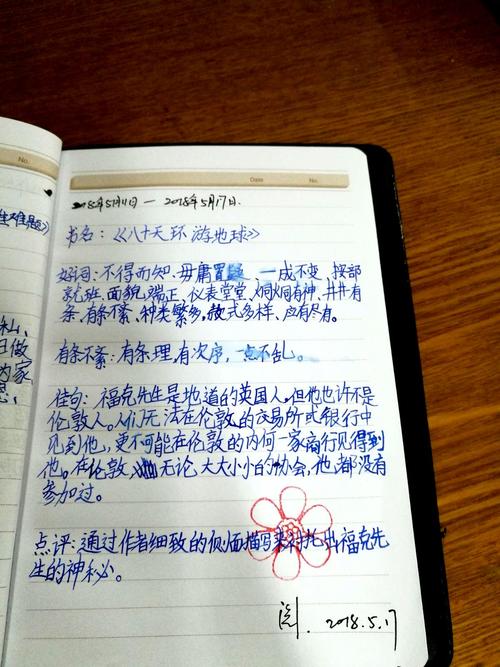 No.
生难题》
日做
为家
No.
Date
2018年5月11日 — 2018年5月17日.
书名：《八十天环游地球》
好词：不得而知、毋庸置疑、一成不变、按部
就班、面貌端正、仪表堂堂、炯炯有神、井井有
条、有条不紊、种类繁多、款式多样、应有尽有。
有条不紊：有条理，有次序，一点不乱。
佳句：福克先生是地道的英国人，但他也许不是
伦敦人。人们无法在伦敦的交易所或银行中
见到他，更不可能在伦敦的内何一家商行见得到
他。在伦敦 无论大大小小的协会，他都没有
参加过。
点评：通过作者细致的侧面描写来衬托出福克先
生的神秘。
阅. 2018.5.17